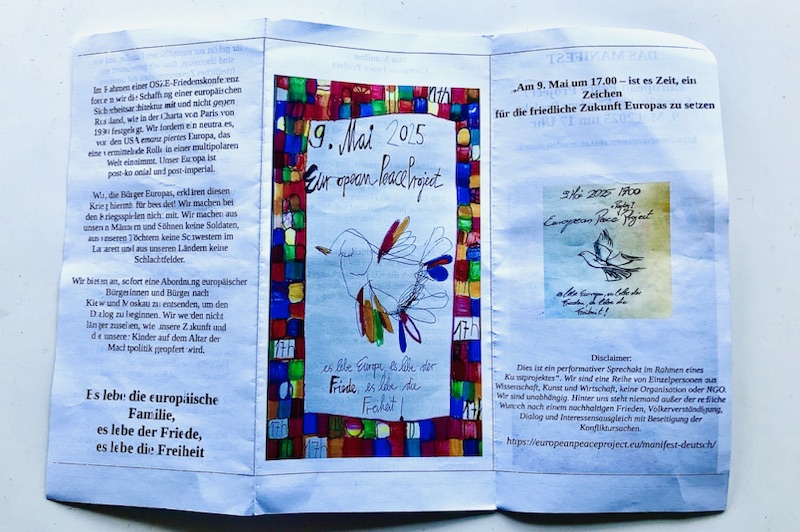 Im Rahmen einer OSZE-Friedenskonferenz
fordern wir die Schaffung einer europäischen
Sicherheitsarchitektur mit und nicht gegen
Russland, wie in der Charta von Paris von
1990 festgelegt. Wir fordern ein neutrales,
von den USA emanzipiertes Europa, das
eine vermittelnde Rolle in einer multipolaren
Welt einnimmt. Unser Europa ist
post-kolonial und post-imperial.
Wir, die Bürger Europas, erklären diesen
Krieg hiermit für beendet! Wir machen bei
den Kriegsspielen nicht mit. Wir machen aus
unseren Männern und Söhnen keine Soldaten,
aus unseren Töchtern keine Schwestern im
Lazarett und aus unseren Ländern keine
Schlachtfelder.
Wir bieten an, sofort eine Abordnung europäischer
Bürgerinnen und Bürger nach
Kiew und Moskau zu entsenden, um den
Dialog zu beginnen. Wir werden nicht
länger zusehen, wie unsere Zukunft und
die unserer Kinder auf dem Altar der
Machtpolitik geopfert wird.
Es lebe die europäische
Familie,
es lebe der Friede,
es lebe die Freiheit
17h
9. Mai 2025
European Peace Project
17h
17h
es lebe Europa, es lebe der
Friede, es lebe die
Freiheit!
17h
17h
17h
„Am 9. Mai um 17.00 – ist es Zeit, ein
Zeichen
für die friedliche Zukunft Europas zu setzen
9 Mai 2025 17:00
European Peace Project
es lebe Europa, es lebe der
Frieden, es lebe die
Freiheit!
Disclaimer:
Dies ist ein performativer Sprechakt im Rahmen eines
Kunstprojektes“. Wir sind eine Reihe von Einzelpersonen aus
Wissenschaft, Kunst und Wirtschaft, keine Organisation oder NGO.
Wir sind unabhängig. Hinter uns steht niemand außer der redliche
Wunsch nach einem nachhaltigen Frieden, Völkerverständigung,
Dialog und Interessensausgleich mit Beseitigung der
Konfliktursachen.
https://europeanpeaceproject.eu/manifest-deutsch/